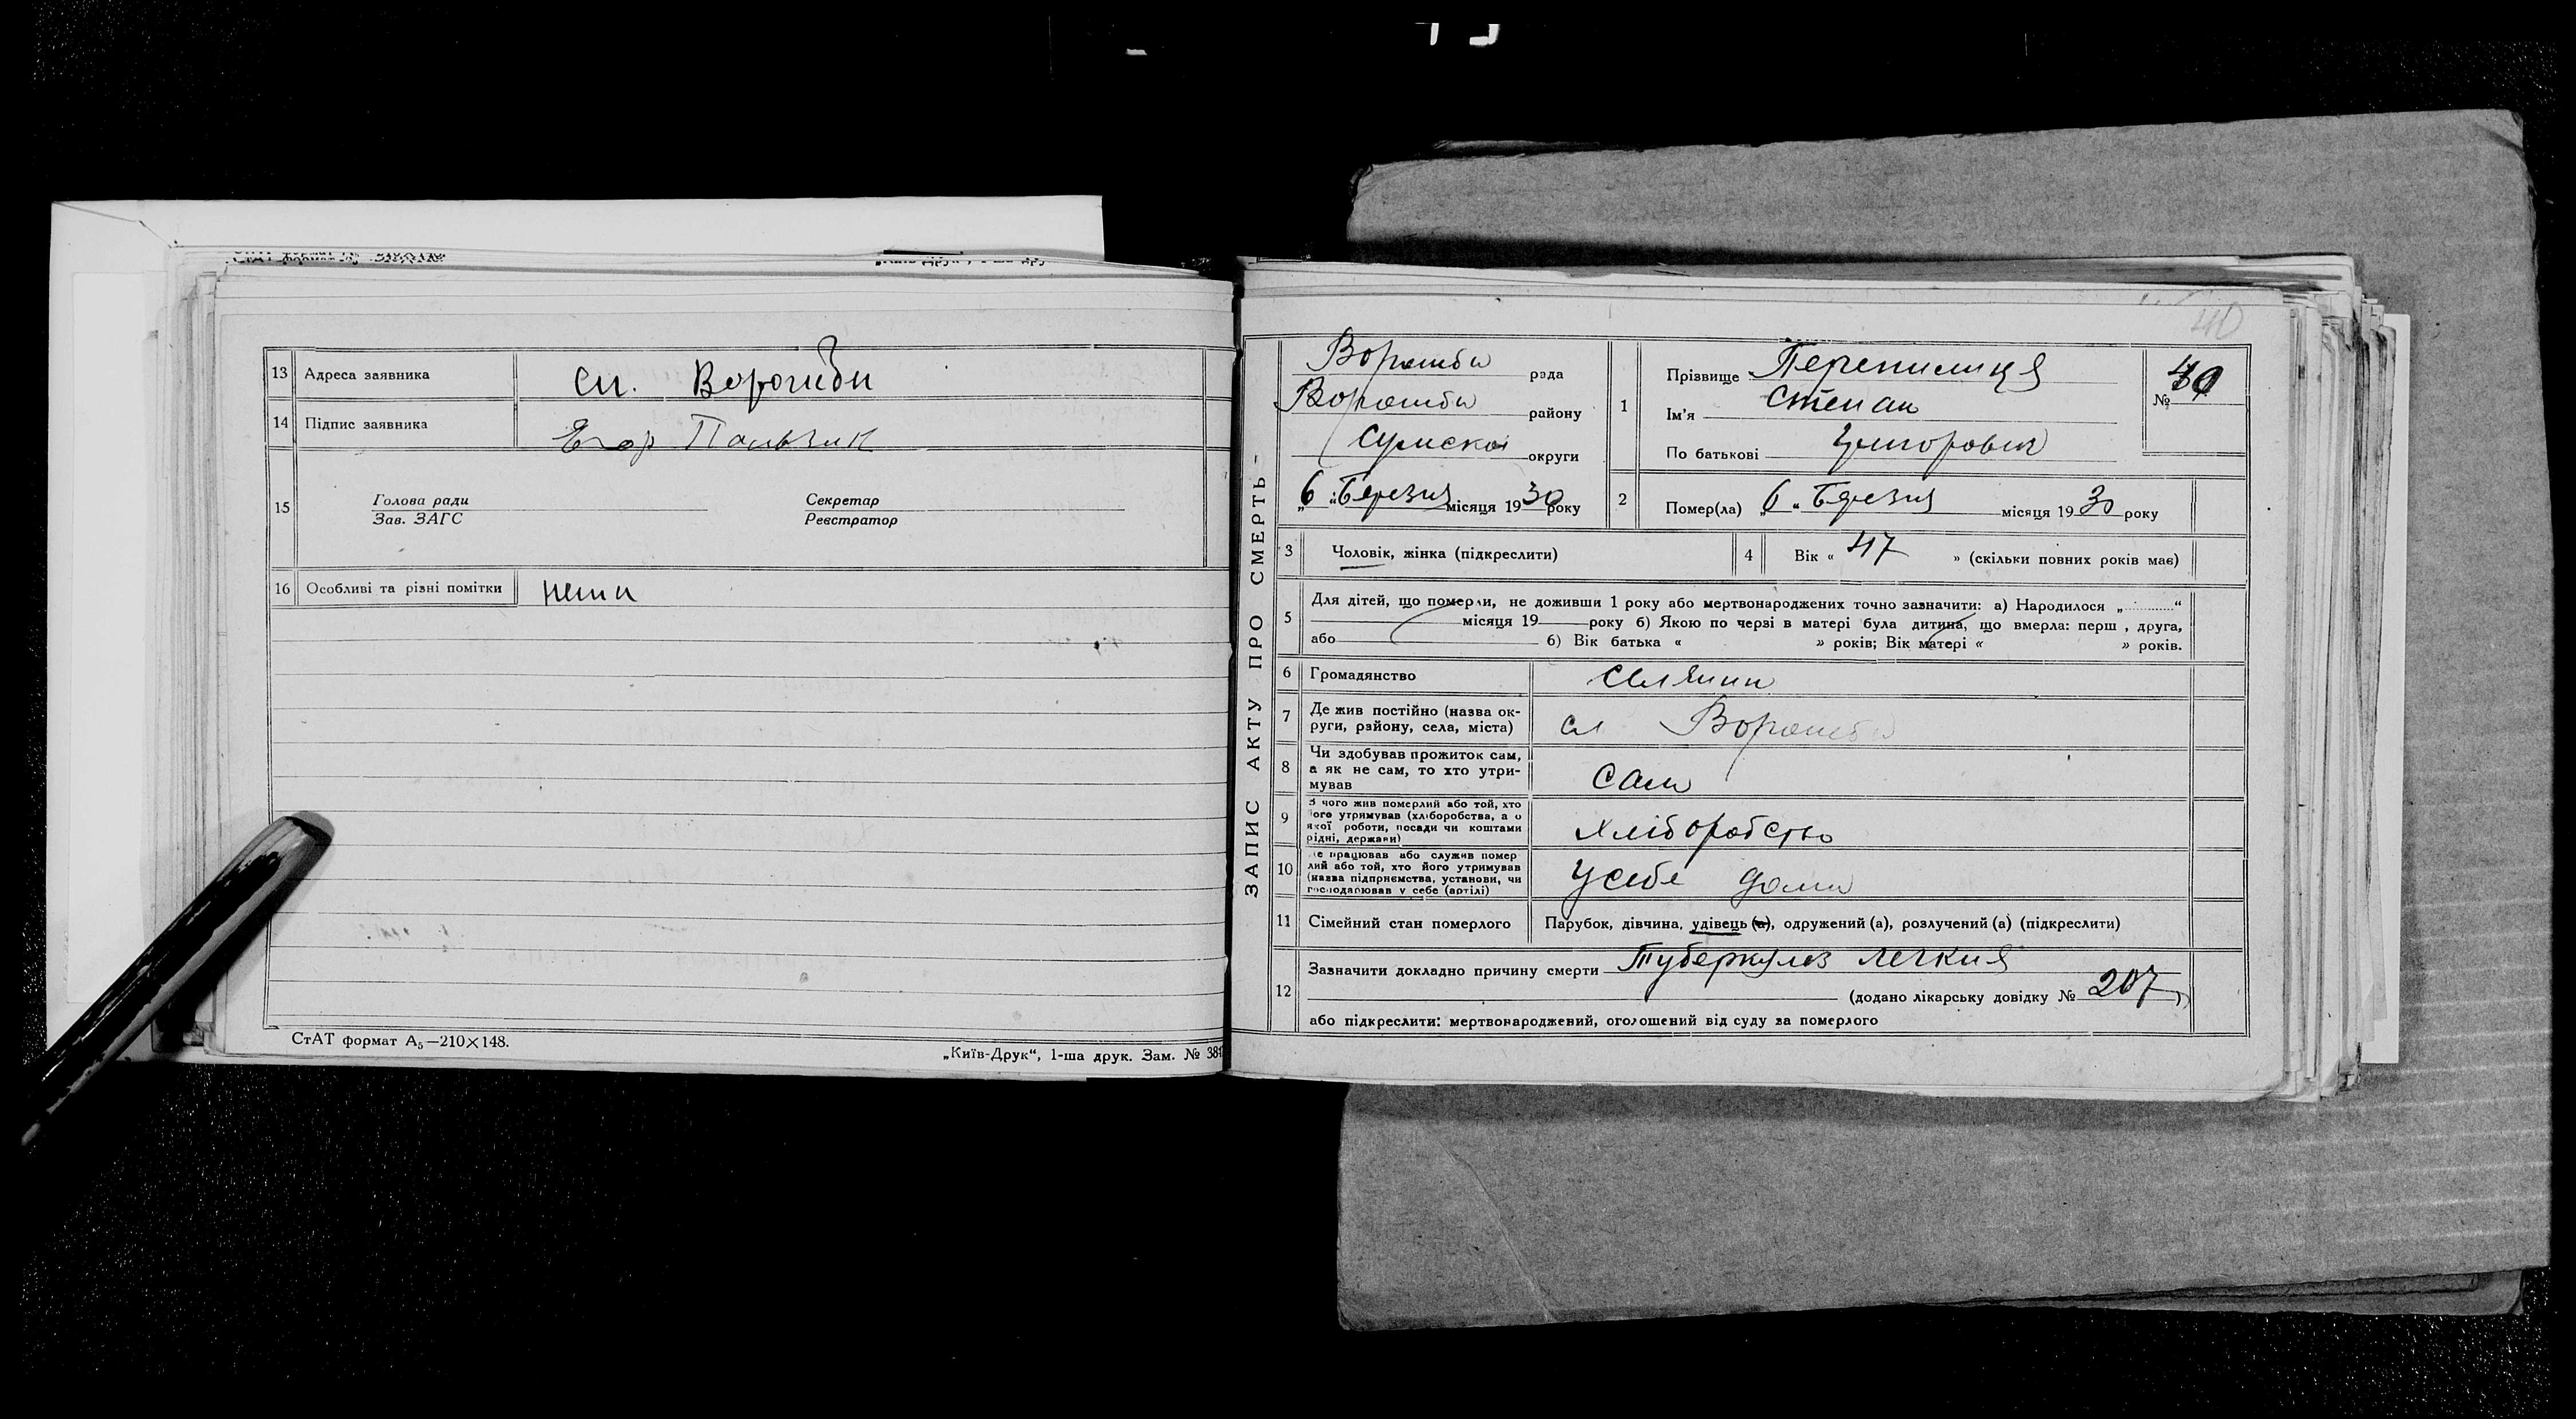 13 Адреса заявника сл. Ворожби
14 Підпис заявника Егор Пальзик
15 Голова ради
Зав. ЗАГС
Секретар
Реєстратор
16 Особливі та різні помітки нема
СтАТ формат А₅—210×148.
„Київ-Друк“, 1-ша друк. Зам. № 381
40
ЗАПИС АКТУ ПРО СМЕРТЬ
Ворожби рада
Ворожби району
Сумской округи
„6“ Березня місяця 1930 року
1 Прізвище Перепилиця
Ім'я Степан
По батькові
№ 40
2 Помер(ла) „6“ Березня місяця 1930 року
3 Чоловік, жінка (підкреслити)
4 Вік « 47 » (скільки повних років має)
5 Для дітей, що померли, не доживши 1 року або мертвонароджених точно зазначити: а) Народилося „..........“
місяця 19 року б) Якою по черзі в матері була дитина, що вмерла: перш , друга,
або б) Вік батька « » років; Вік матері « » років.
6 Громадянство селянин
7 Де жив постійно (назва ок-
руги, району, села, міста) сл Ворожби
8 Чи здобував прожиток сам,
а як не сам, то хто утри-
мував сам
9 З чого жив померлий або той, хто
його утримував (хліборобства, а о
якої роботи, посади чи коштами
рідні, держави) хліборобство
10 Де працював або служив помер
лий або той, хто його утримував
(назва підприємства, установи, чи
господарював у себе (артілі) усебе дома
11 Сімейний стан померлого Парубок, дівчина, удівець (а), одружений (а), розлучений (а) (підкреслити)
12 Зазначити докладно причину смерти Туберкульоз легкия
(додано лікарську довідку № 207)
або підкреслити: мертвонароджений, оголошений від суду за померлого